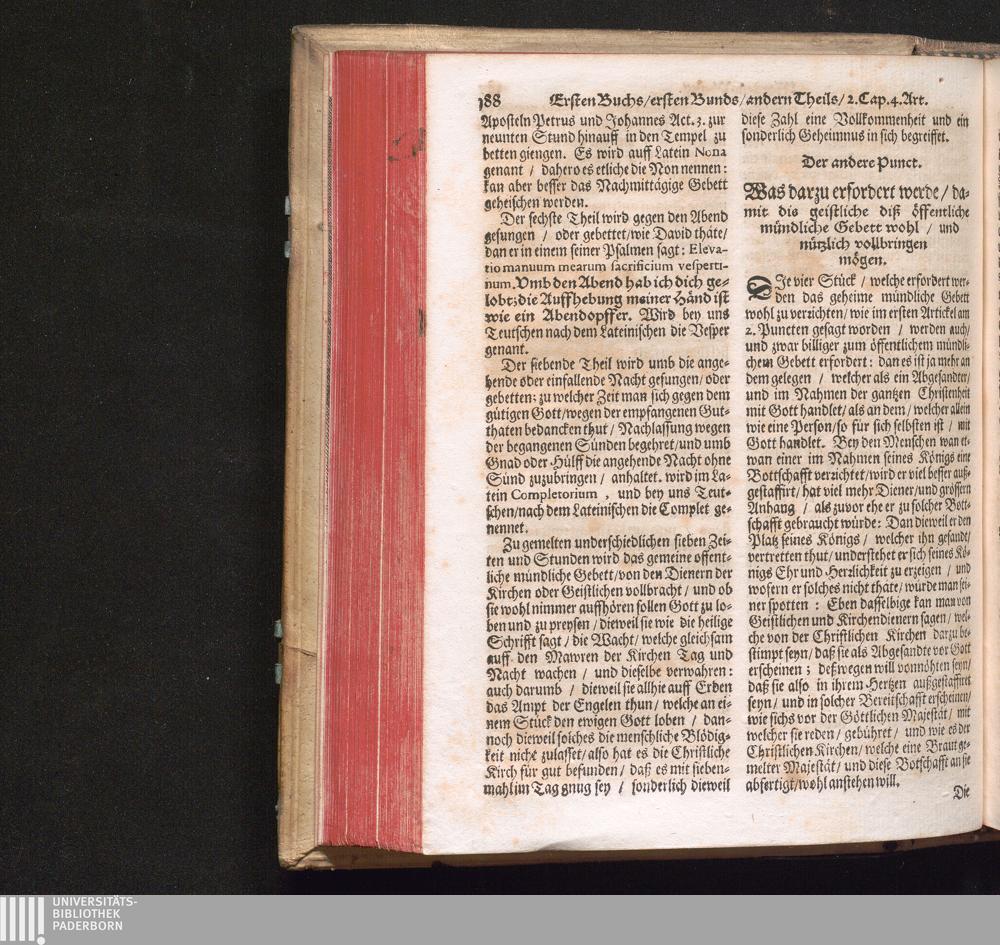 188 Ersten Buchs/ersten Bunds/andern Theils/2.Cap.4.Art.
Aposteln Petrus und Johannes Act.3. zur
neunten Stund hinauff in den Tempel zu
betten giengen. Es wird auff Latein Nona
genant / dahero es etliche die Non nennen:
kan aber besser das Nachmittägige Gebett
geheischen werden.
Der sechste Theil wird gegen den Abend
gesungen / oder gebettet/wie David thäte/
dan er in einem seiner Psalmen sagt: Eleva-
tio manuum mearum sacrificium vesperti-
num. Vmb den Abend hab ich dich ge-
lobt; die Auffhebung meiner Händ ist
wie ein Abendopffer. Wird bey uns
Teutschen nach dem Lateinischen die Vesper
genant.
Der siebende Theil wird umb die ange-
hende oder einfallende Nacht gesungen/oder
gebetten; zu welcher Zeit man sich gegen dem
gütigen Gott/wegen der empfangenen Gut-
thaten bedancken thut / Nachlassung wegen
der begangenen Sünden begehret/und umb
Gnad oder Hülff die angehende Nacht ohne
Sünd zuzubringen / anhaltet. wird im La-
tein Completorium , und bey uns Teut-
schen/nach dem Lateinischen die Complet ge-
nennet.
Zu gemelten underschiedlichen sieben Zei-
ten und Stunden wird das gemeine offent-
liche mündliche Gebett/von den Dienern der
Kirchen oder Geistlichen vollbracht / und ob
sie wohl nimmer auffhören sollen Gott zu lo-
ben und zu preysen / dieweil sie wie die heilige
Schrifft sagt / die Wacht/ welche gleichsam
auff den Mawren der Kirchen Tag und
Nacht wachen / und dieselbe verwahren:
auch darumb / dieweil sie allhie auff Erden
das Ampt der Engelen thun / welche an ei-
nem Stück den ewigen Gott loben / dan-
noch dieweil solches die menschliche Blödig-
keit nicht zulasset/also hat es die Christliche
Kirch für gut befunden / daß es mit sieben-
mahl im Tag gnug sey / sonderlich dieweil
diese Zahl eine Vollkommenheit und ein
sonderlich Geheimnus in sich begreiffet.
Der andere Punct.
Was darzu erfordert werde / da-
mit dis geistliche diß öffentliche
mündliche Gebett wohl / und
nützlich vollbringen
mögen.
DIe vier Stück / welche erfordert wer-
den das geheime mündliche Gebett
wohl zu verzichten/ wie im ersten Artickel am
2. Puncten gesagt worden / werden auch/
und zwar billiger zum öffentlichem mündli-
chem Gebett erfordert: dan es ist ja mehr an
dem gelegen / welcher als ein Abgesandter/
und im Nahmen der gantzen Christenheit
mit Gott handlet/ als an dem / welcher allein
wie eine Person/so für sich selbsten ist / mit
Gott handlet. Bey den Menschen wan et-
wan einer im Nahmen seines Königs eine
Bottschafft verzichtet/wird er viel besser auß-
gestaffirt/ hat viel mehr Diener/und grössern
Anhang / als zuvor ehe er zu solcher Bott-
schafft gebraucht würde: Dan dieweil er den
Platz seines Königs / welcher ihn gesandt/
vertretten thut/ understehet er sich seines Kö-
nigs Ehr und Herzlichkeit zu erzeigen / und
wofern er solches nicht thäte/ würde man sei-
ner spotten : Eben dasselbige kan man von
Geistlichen und Kirchendienern sagen/ wel-
che von der Christlichen Kirchen darzu be-
stimpt seyn/ daß sie als Abgesandte vor Gott
erscheinen ; deßwegen will vonnöhten seyn/
daß sie also in ihrem Hertzen außgestaffiret
seyn/ und in solcher Bereitschafft erscheinen/
wie sichs vor der Göttlichen Majestät/ mit
welcher sie reden/ gebühret/ und wie es der
Christlichen Kirchen/ welche eine Braut ge-
melter Majestät/ und diese Botschafft an sie
abfertigt/wohl anstehen will.
Die
UNIVERSITÄTS-
BIBLIOTHEK
PADERBORN